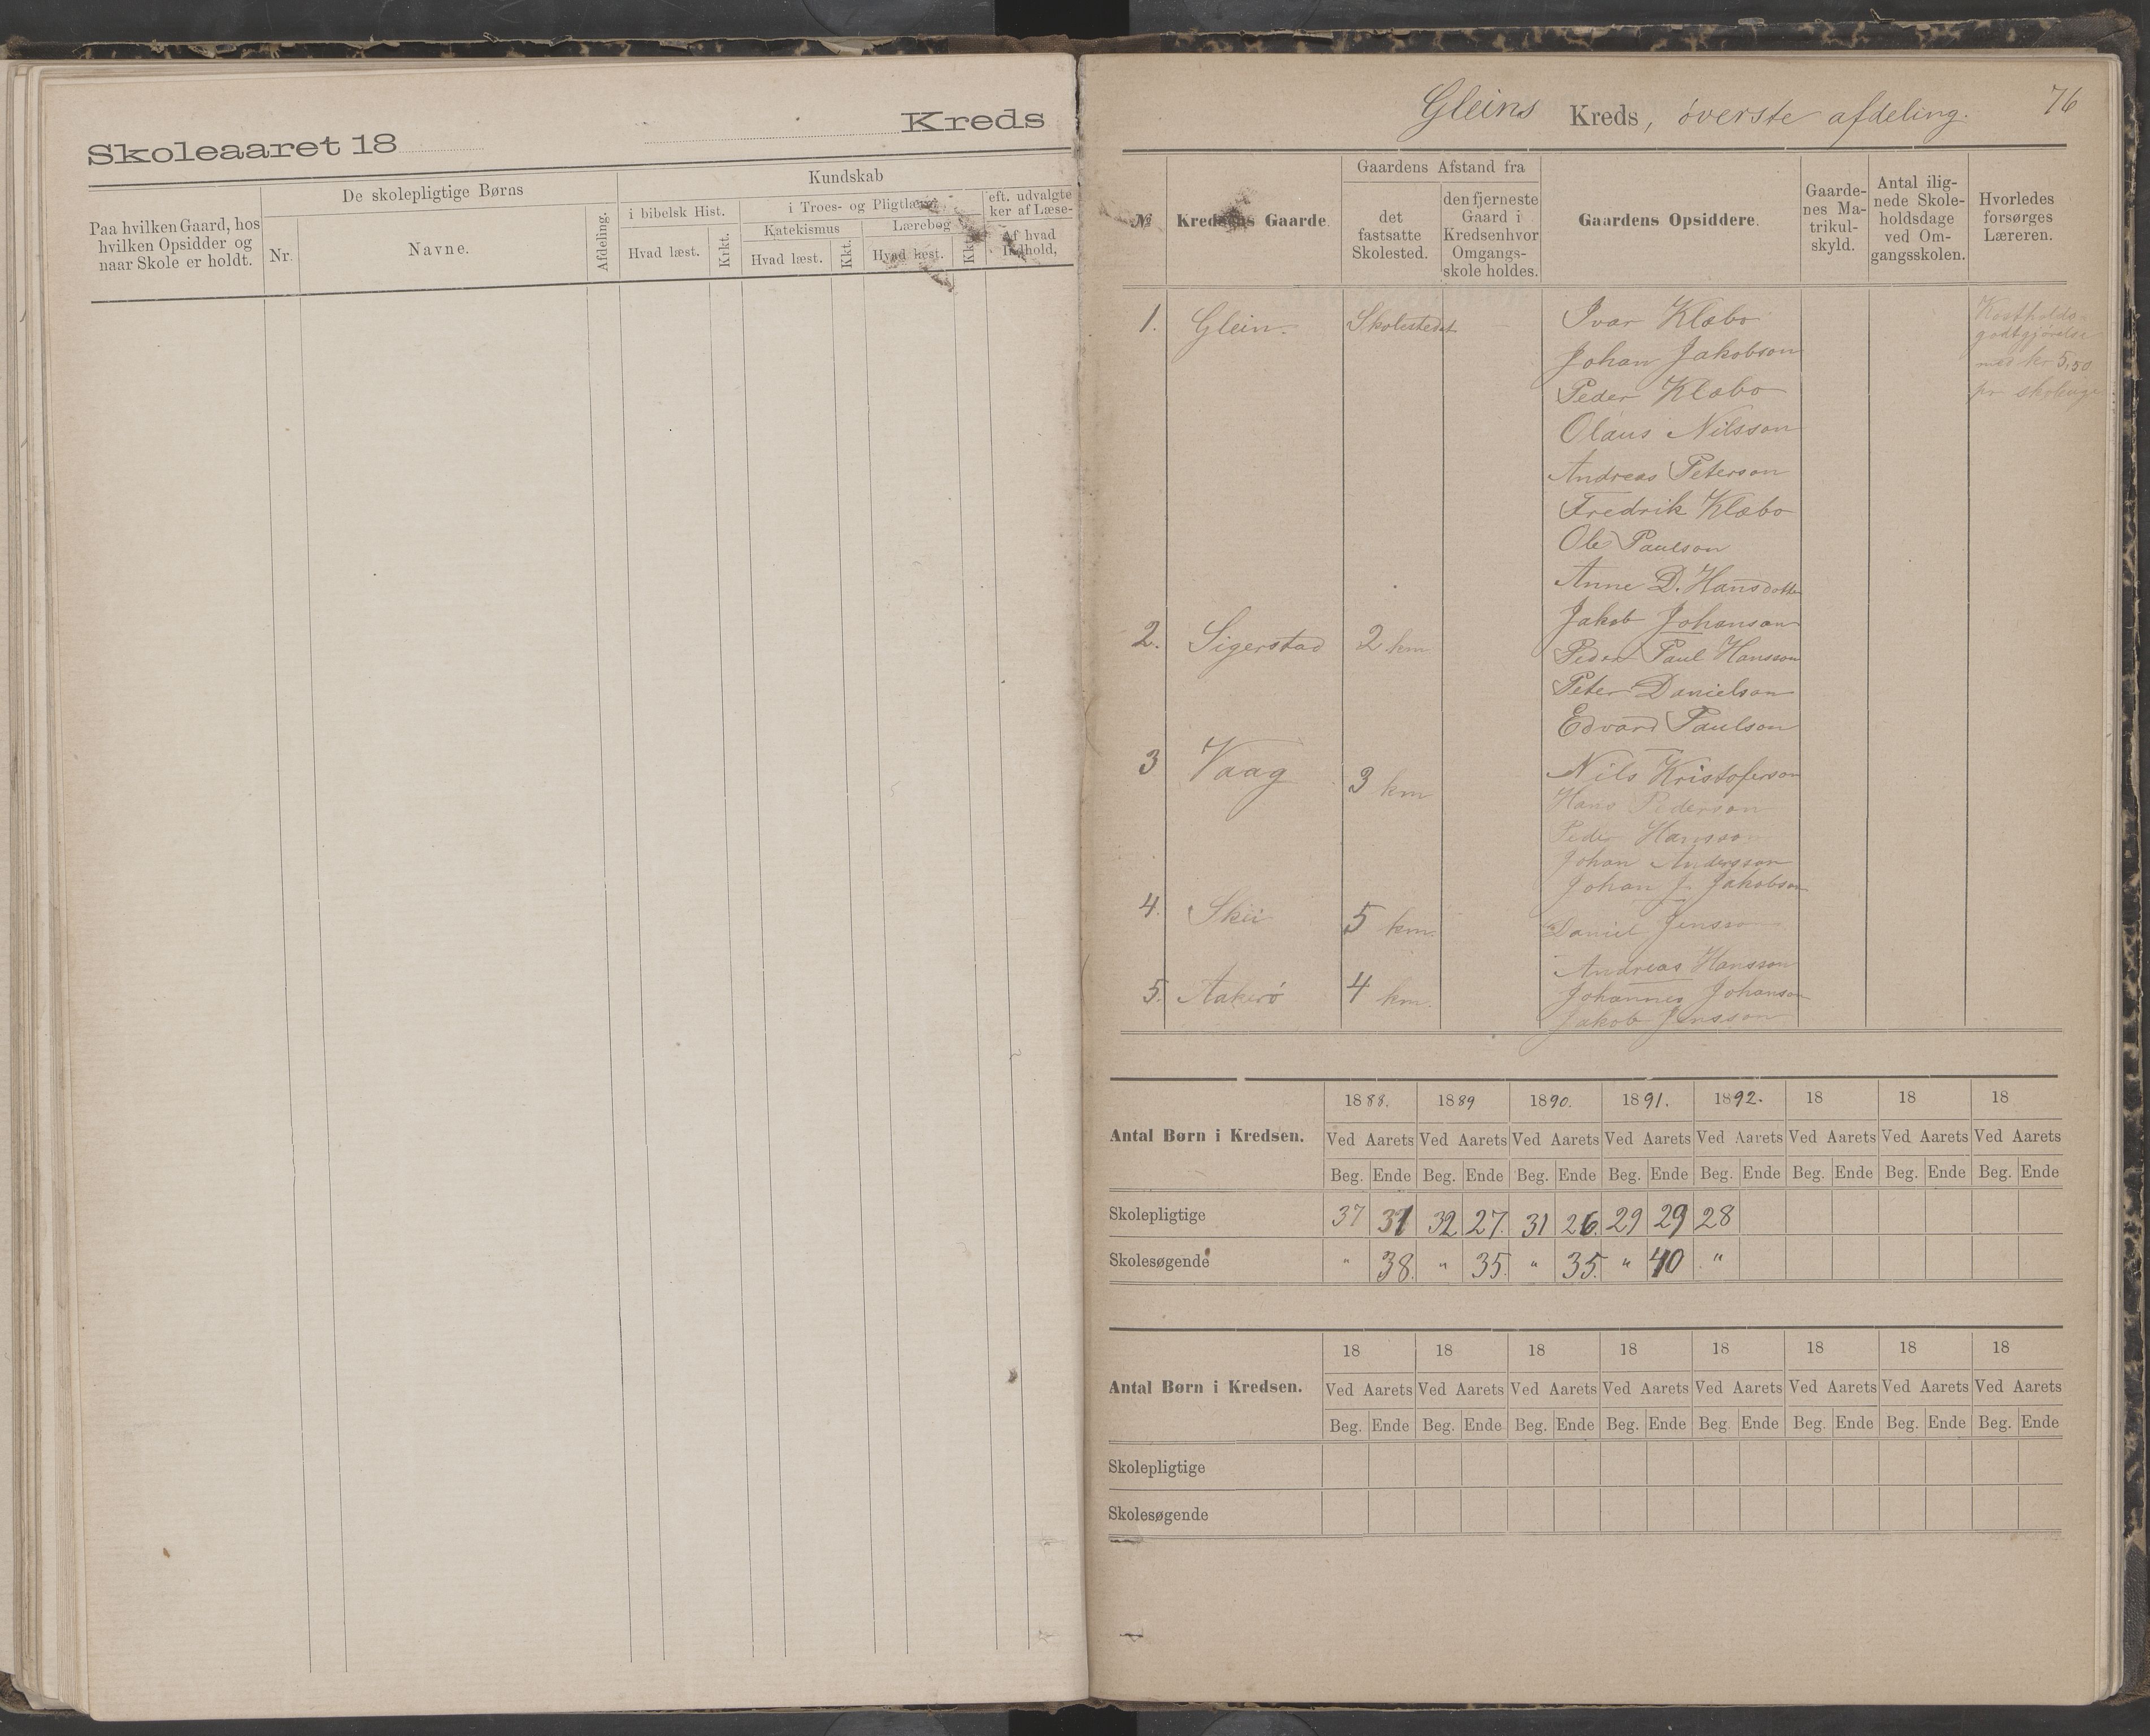 Skoleaaret 18 Kreds
Paa hvilken Gaard, hos hvilken Opsidder og naar Skole er holdt.
De skolepligtige Børns
Nr.
Navne.
Afdeling.
Kundskab
i bibelsk Hist.
Hvad læst.
Krkt.
i Troes- og Pligtlære
Katekismus
Hvad læst.
Kkt.
Lærebog
Hvad læst.
Kkt.
eft. udvalgte
ker af Læse-
Af hvad
Indhold,
Gleins Kreds, överste afdeling. 76
№
Kredsens Gaarde.
Gaardens Afstand fra
det
fastsatte
Skolested.
den fjerneste
Gaard i
Kredsen hvor
Omgangs-
skole holdes.
Gaardens Opsiddere.
Gaarde-
nes Ma-
trikul-
skyld.
Antal ilig-
nede Skole-
holdsdage
ved Om-
gangsskolen.
Hvorledes
forsørges
Læreren.
1. Glein. Skolestedet Ivar Klæbo
Kostholds-
godtgjörelse
med kr 5,50
pr skoleuge
Johan Jakobson
Peder Klæbo
Olaus Nilsson
Andreas Peterson
Fredrik Klæbo
Ole Paulson
Anne D. Hansdotter
Jakob Johanson
2. Sigerstad 2 km
Peder Paul Hansson
Peter Danielson
Edvard Paulson
3 Vaag 3 km Nils Kristoferson
Hans Pederson
Peder Hansson
Johan Andersson
Johan J. Jakobson
4. Skei 5 km. Daniel Jensson
Andreas Hansson
5. Aakerö 4 km. Johannes Johanson
Jakob Jensson
Antal Børn i Kredsen.
1888. 1889 1890. 1891. 1892. 18 18 18
Ved Aarets Ved Aarets Ved Aarets Ved Aarets Ved Aarets Ved Aarets Ved Aarets Ved Aarets
Beg. Ende Beg. Ende Beg. Ende Beg. Ende Beg. Ende Beg. Ende Beg. Ende Beg. Ende
Skolepligtige 37 31 32 27. 31 26. 29 29 28
Skolesøgende " 38. " 35. " 35. " 40 "
Antal Børn i Kredsen.
18 18 18 18 18 18 18 18
Ved Aarets Ved Aarets Ved Aarets Ved Aarets Ved Aarets Ved Aarets Ved Aarets Ved Aarets
Beg. Ende Beg. Ende Beg. Ende Beg. Ende Beg. Ende Beg. Ende Beg. Ende Beg. Ende
Skolepligtige
Skolesøgende